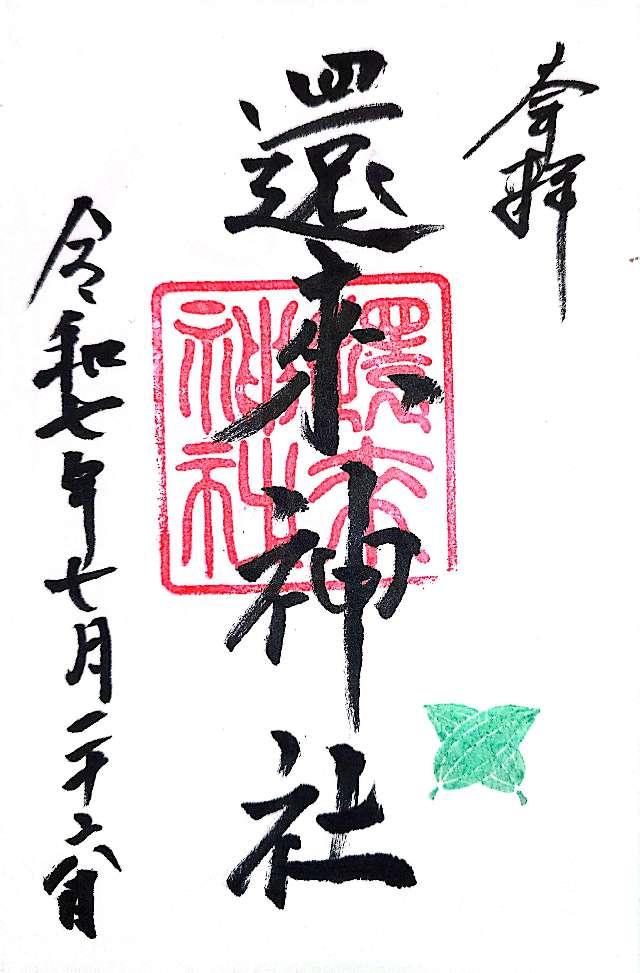 奉拝
還来神社
還来
神社
令和七年七月二十六日